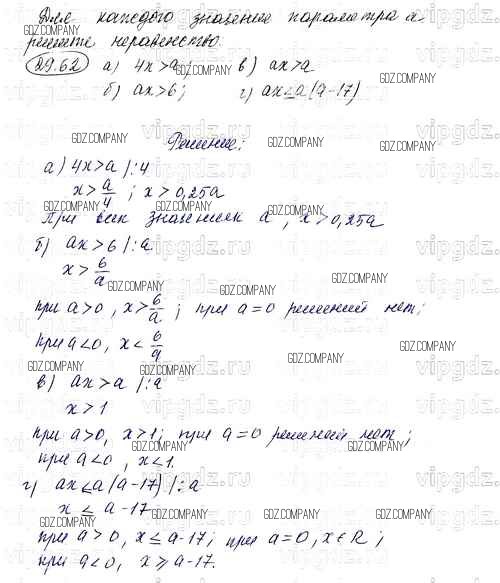 Для каждого значение параметра а
решите неравенство.
29.62 а) 4x>a; в) ax>a
б) ax>6; г) ax≤a(a-17)
Решение:
а) 4x>a |:4
x>a/4 ; x>0,25a
При всех значениях a, x>0,25a
б) ax>6 |:a
x>6/a
при a>0, x>6/a; при a=0 решений нет;
при a<0, x<6/a
в) ax>a |:a
x>1
при a>0, x>1; при a=0 решений нет;
при a<0, x<1.
г) ax≤a(a-17) |:a
x ≤ a-17
при a>0, x≤a-17; при a=0, x∈R;
при a<0, x≥a-17.